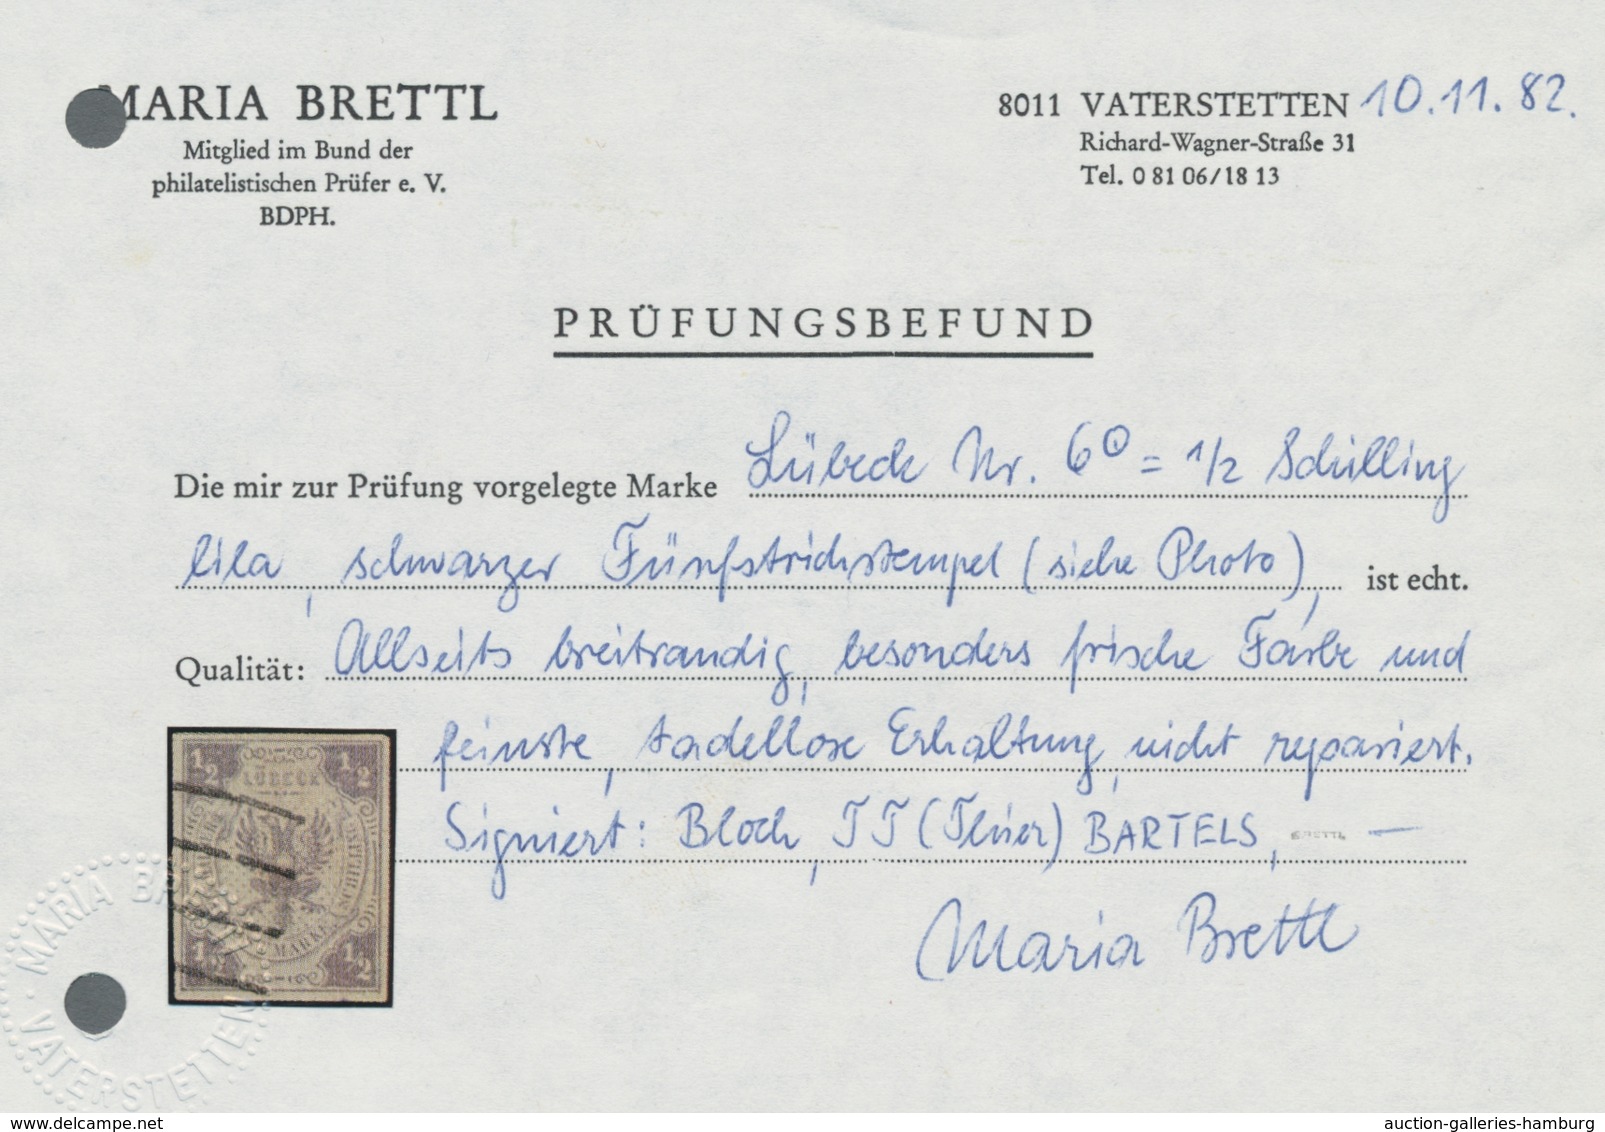 MARIA BRETTL
Mitglied im Bund der
philatelistischen Prüfer e. V.
BDPH.
8011 VATERSTETTEN 10.11.82.
Richard-Wagner-Straße 31
Tel. 0 81 06/18 13
PRÜFUNGSBEFUND
Die mir zur Prüfung vorgelegte Marke Lübeck Nr. 6 = 1/2 Schilling
lila, schwarzer Fünfstrichstempel (siehe Photo), ist echt.
Qualität: Allseits breitrandig, besonders frische Farbe und
feinste, tadellose Erhaltung, nicht repariert.
Signiert: Bloch, TT (Thier) BARTELS, BRETTL —
Maria Brettl
1/2 1/2
LÜBECK
SCHILLING
MARKE
1/2 1/2
MARIA BRETTL
VATERSTETTEN
www.delcampe.net
auction-galleries-hamburg